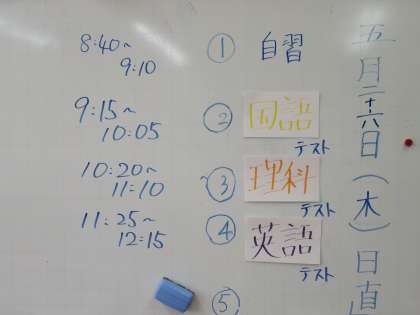 五月二十六日(木)日直
8:40~ 9:10 ① 自習
9:15~ 10:05 ② 国語 テスト
10:20~ 11:10 ③ 理科 テスト
11:25~ 12:15 ④ 英語 テスト
⑤